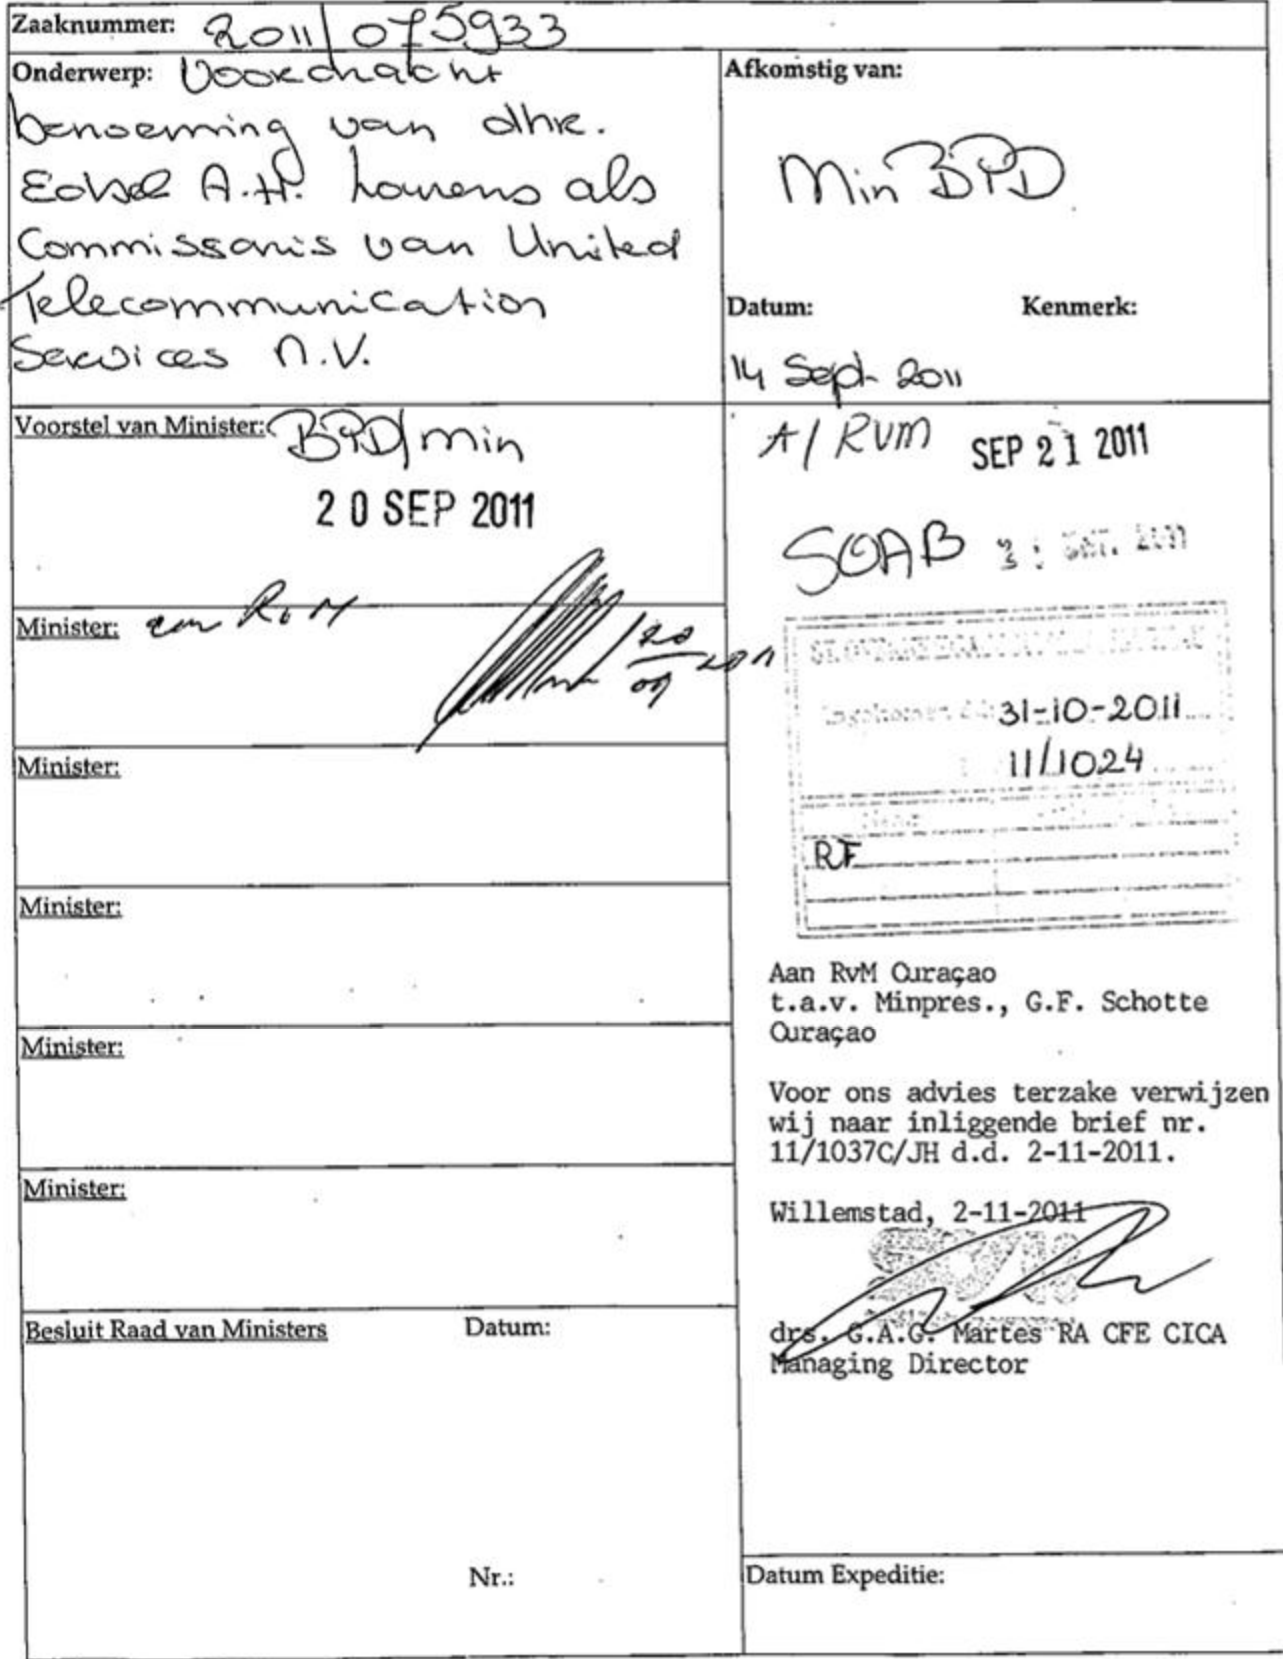 Zaaknummer: 2011/075933
Onderwerp: Voordracht
benoeming van dhr.
A.H. Lourens als
Commissaris van United
Telecommunication
Services N.V.
Afkomstig van:
Min BPD
Datum: Kenmerk:
14 Sept 2011
Voorstel van Minister: BPD/min
20 SEP 2011
Minister: aan RvM
20/09 2011
Minister:
Minister:
Minister:
Minister:
Besluit Raad van Ministers Datum:
Nr.:
A/ RVM SEP 21 2011
SOAB 31 2011
31-10-2011
11/1024
RF
Aan RvM Curaçao
t.a.v. Minpres., G.F. Schotte
Curaçao
Voor ons advies terzake verwijzen
wij naar inliggende brief nr.
11/1037C/JH d.d. 2-11-2011.
Willemstad, 2-11-2011
drs. G.A.G. Martes RA CFE CICA
Managing Director
Datum Expeditie: